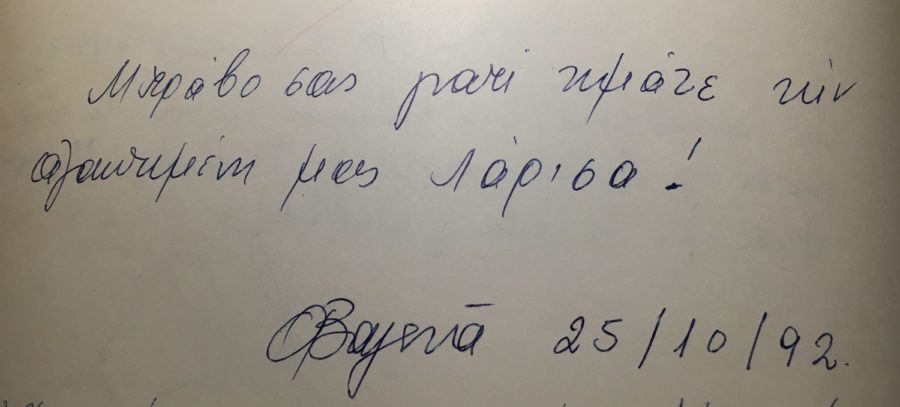 Μπράβο σας γιατί τιμάτε την
αγαπημένη μας Λάρισα!
Βαγενά 25/10/92.